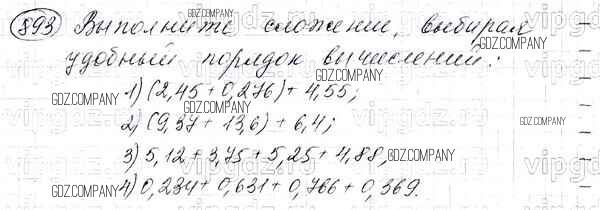 893 Выполните сложение, выбирая
удобный порядок вычислений:
1) (2,45 + 0,276) + 4,55;
2) (9,37 + 13,6) + 6,4;
3) 5,12 + 3,75 + 5,25 + 4,88;
4) 0,234 + 0,631 + 0,766 + 0,369.
GDZ.COMPANY
GDZ.COMPANY
GDZ.COMPANY
GDZ.COMPANY
GDZ.COMPANY
GDZ.COMPANY
GDZ.COMPANY
GDZ.COMPANY